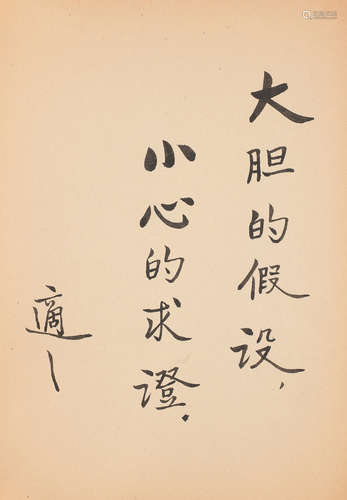 大胆的假设，
小心的求證．
適